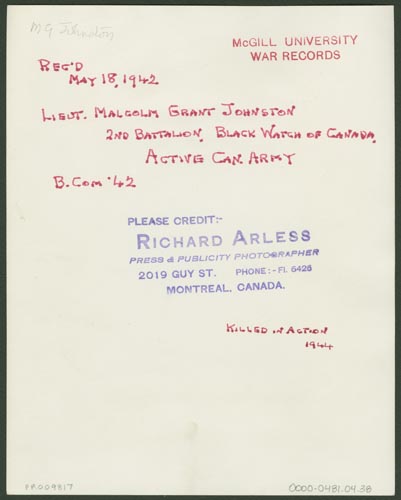 M G Johnston
McGILL UNIVERSITY
WAR RECORDS
REC'D
MAY 18, 1942
LIEUT. MALCOLM GRANT JOHNSTON
2ND BATTALION, BLACK WATCH OF CANADA,
ACTIVE CAN. ARMY
B. COM '42
PLEASE CREDIT:-
RICHARD ARLESS
PRESS & PUBLICITY PHOTOGRAPHER
2019 GUY ST. PHONE:- FI. 6426
MONTREAL, CANADA.
KILLED IN ACTION
1944
PR009817
0000-0481.04.38